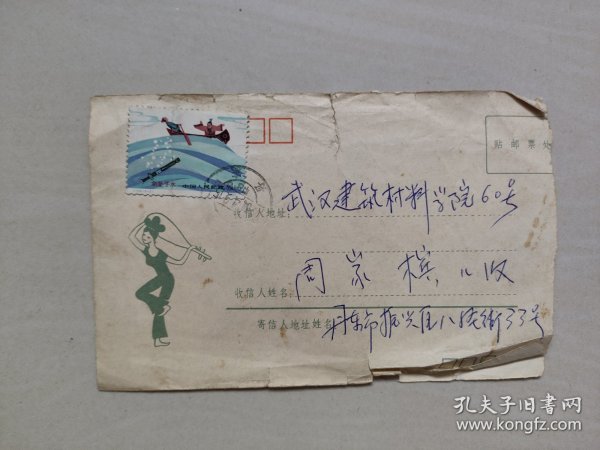 刻舟求剑 中国人民邮政
贴邮票处
收信人地址: 武汉建筑材料学院60号
收信人姓名: 周家槟 收
寄信人地址姓名 丹东市振兴区八纬街33号
孔夫子旧书网
www.kongfz.com